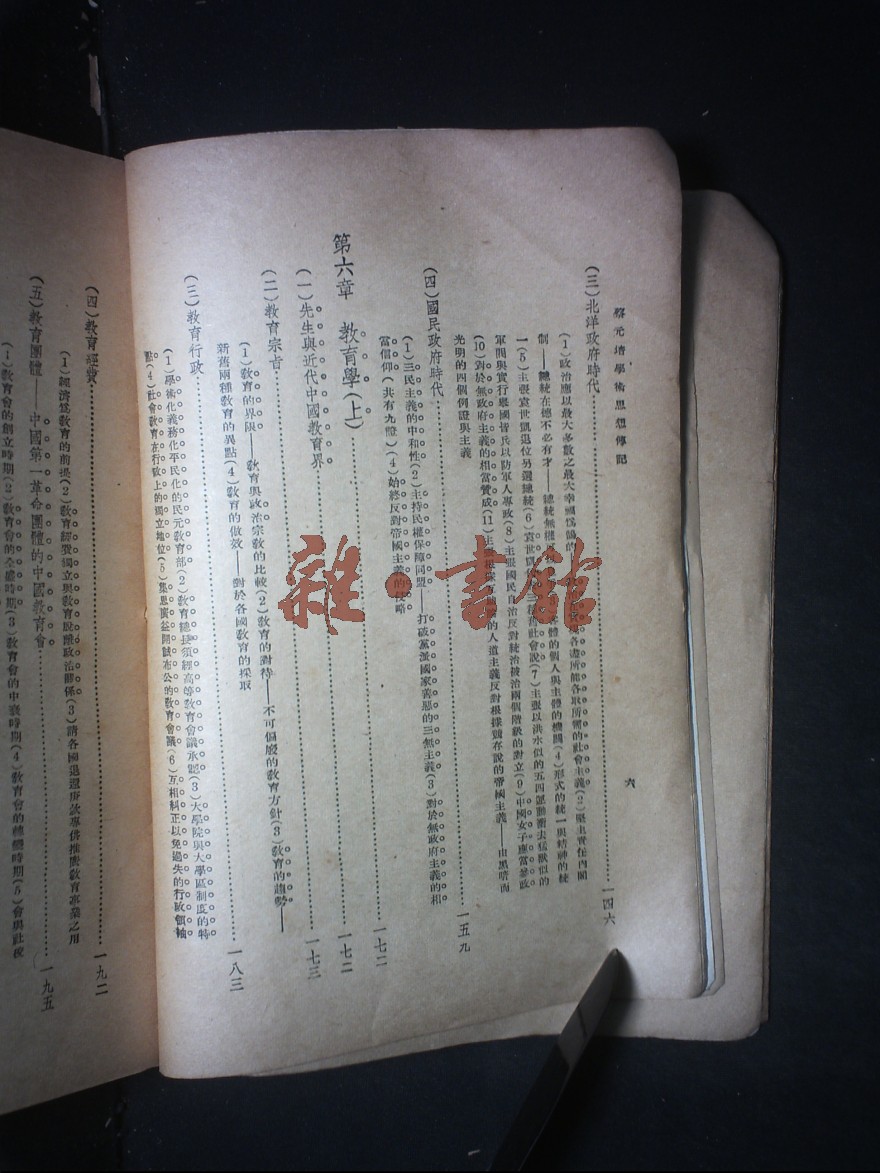 蔡元培學術思想傳記
六
(三)北洋政府時代 一四六
(1)政治應以最大多數之最大幸福為鵠的 各盡所能各取所需的社會主義(2)堅主責任內閣
制——總統在德不必有才——總統無權 體的個人與主體的機關(4)形式的統一與精神的統
一(5)主張袁世凱退位另選總統(6)袁世凱 舊社會說(7)主張以洪水似的五四運動衝去猛獸似的
軍閥與實行舉國皆兵以防軍人專政(8)主張國民自治反對統治被治兩個階級的對立(9)中國女子應當參政
(10)對於無政府主義的相當贊成(11)主張 互助 的人道主義反對根據競存說的帝國主義——由黑暗而
光明的四個例證與主義
(四)國民政府時代 一五九
(1)三民主義的中和性(2)主持民權保障同盟——打破黨派國家善惡的三無主義(3)對於無政府主義的相
當信仰(共有九證)(4)始終反對帝國主義的侵略
第六章 教育學(上) 一七二
(一)先生與近代中國教育界 一七二
(二)教育宗旨 一七三
(1)教育的界限——教育與政治宗教的比較(2)教育的對待——不可偏廢的教育方針(3)教育的趨勢——
新舊兩種教育的異點(4)教育的倣效——對於各國教育的採取
(三)教育行政 一八三
(1)學術化義務化平民化的民元教育部(2)教育總長須經高等教育會議承認(3)大學院與大學區制度的特
點(4)社會教育在行政上的獨立地位(5)集思廣益開誠布公的教育會議(6)互相糾正以免過失的行政領袖
(四)教育經費 一九二
(1)經濟為教育的前提(2)教育經費獨立與教育脫離政治關係(3)請各國退還庚款專供推廣教育事業之用
(五)教育團體——中國第一革命團體的中國教育會 一九五
(1)教育會的創立時期(2)教育會的全盛時期(3)教育會的中衰時期(4)教育會的轉變時期(5)會與社稷
雜·書館